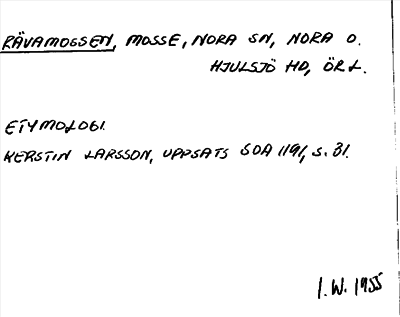 RÄVAMOSSEN, MOSSE, NORA SN, NORA O.
HJULSJÖ HD, ÖR L.
ETYMOLOGI.
KERSTIN LARSSON, UPPSATS SOA 1191, S. 31.
I.W. 1955